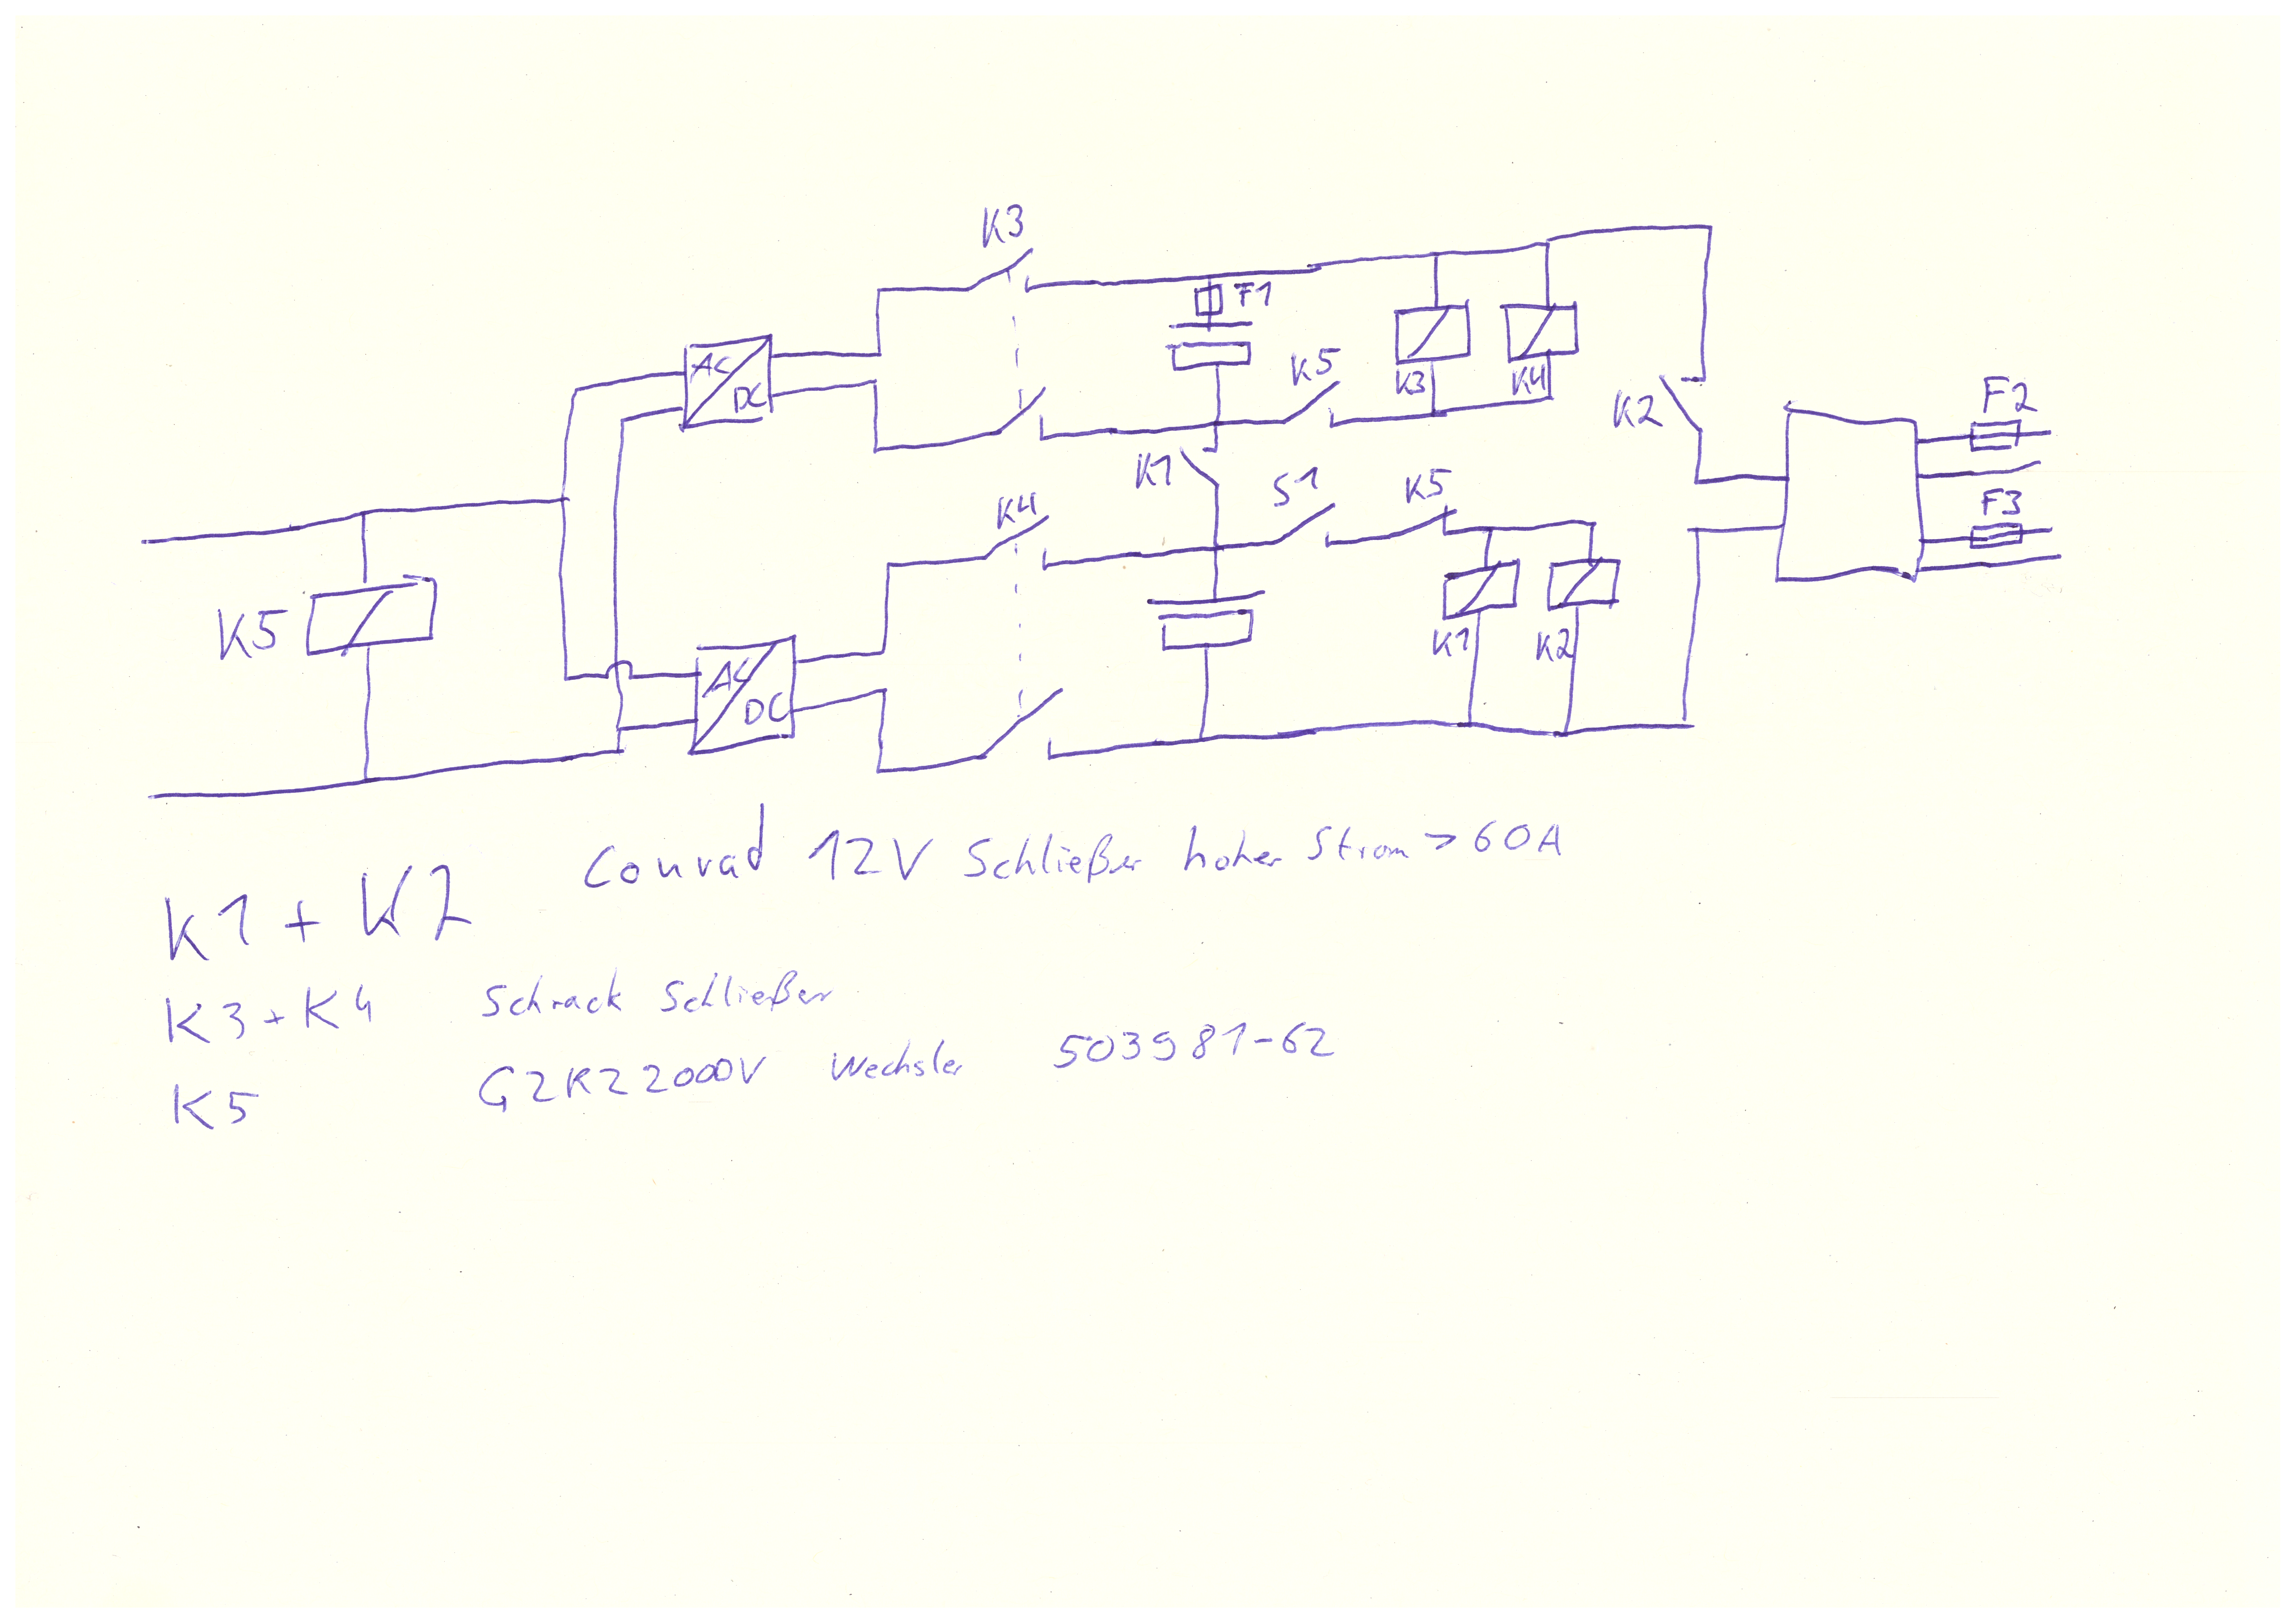 K3
F1
AC
DC
K5
K3
K4
K2
F2
K1
S1
K5
F3
K4
K5
AC
DC
K1
K2
Conrad 12V Schließer hoher Strom > 60A
K1 + K2
K3 + K4 Schrack Schließer
K5 G2RZ2000V Wechsler 503981-62